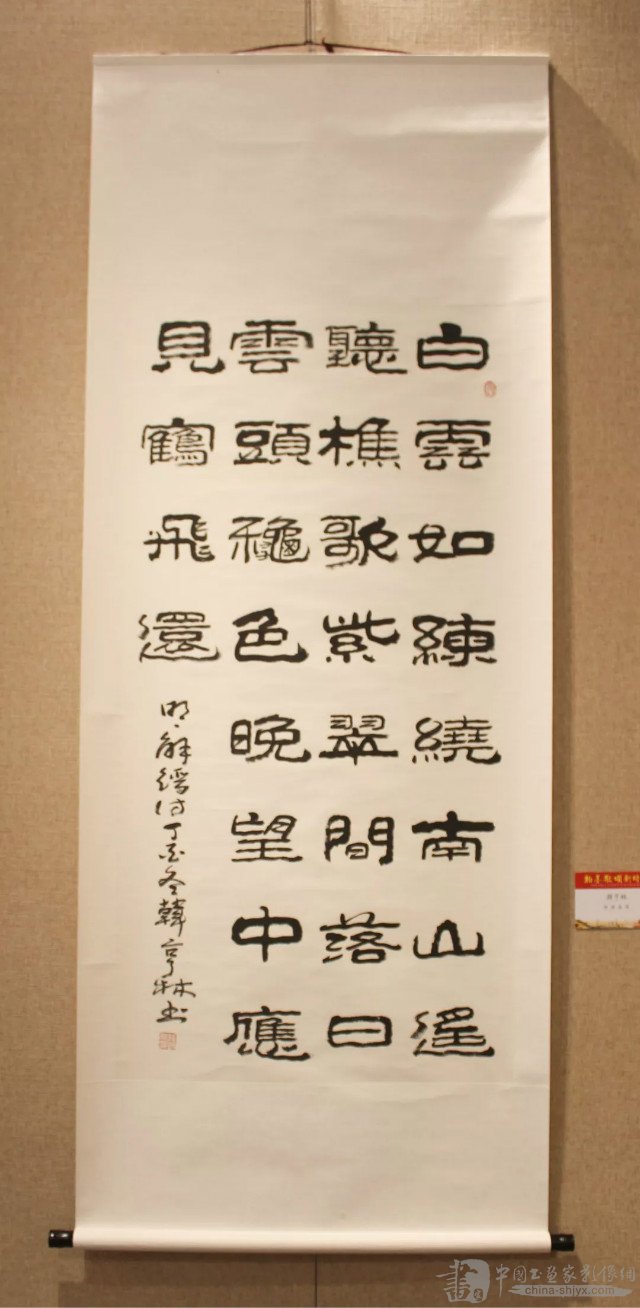 白雲如練繞南山遥
聽樵歌紫翠間落日
雲頭龝色晚望中應
見鶴飛還
明解縉詩丁酉冬韓亨林书
中国书画家影像网
china-shjyx.com